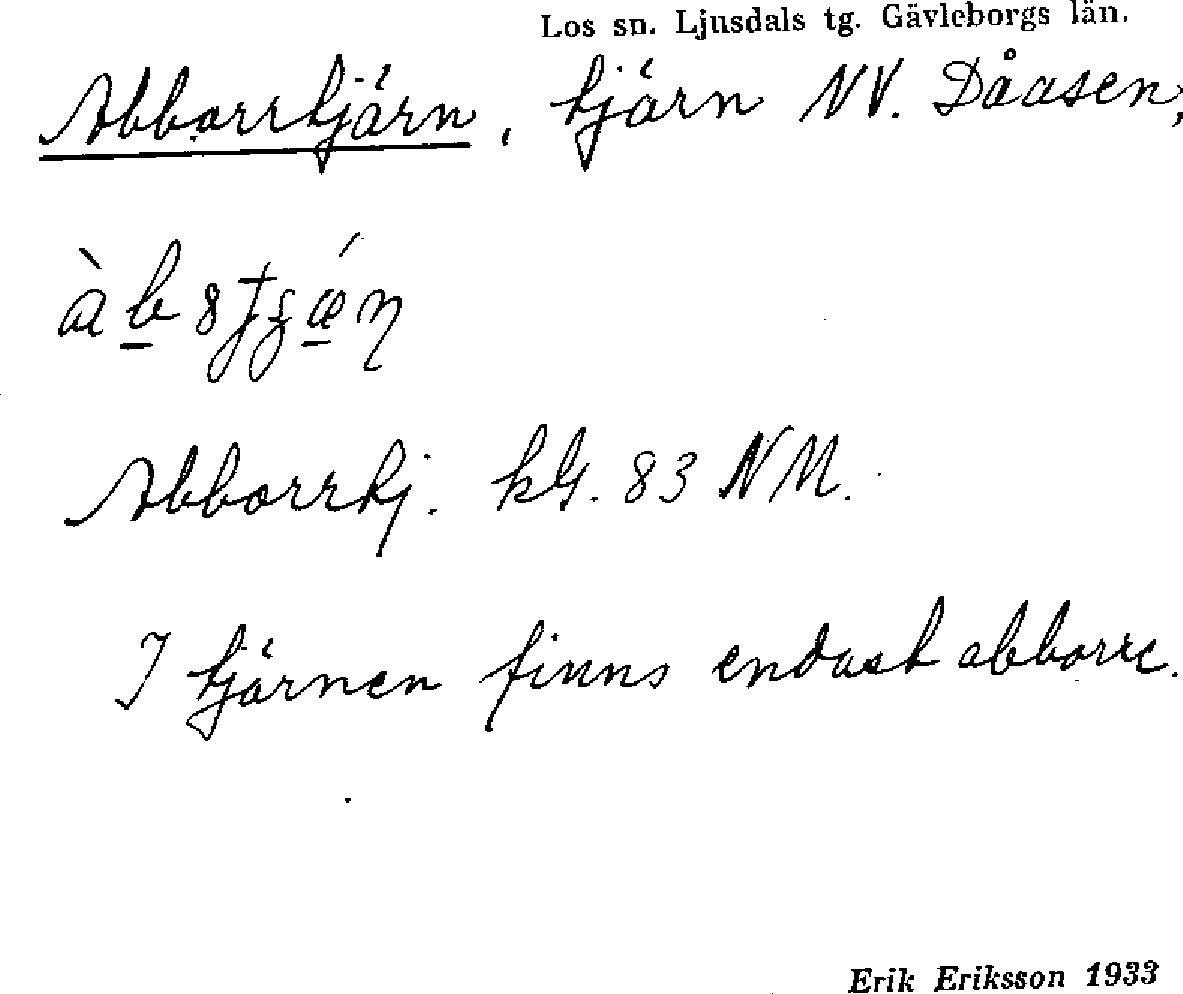 Los sn. Ljusdals tg. Gävleborgs län.
Abborrtjärn, tjärn NV. Dåasen,
Abborrtj. kbl. 83 NM.
I tjärnen finns endast abborre.
Erik Eriksson 1933